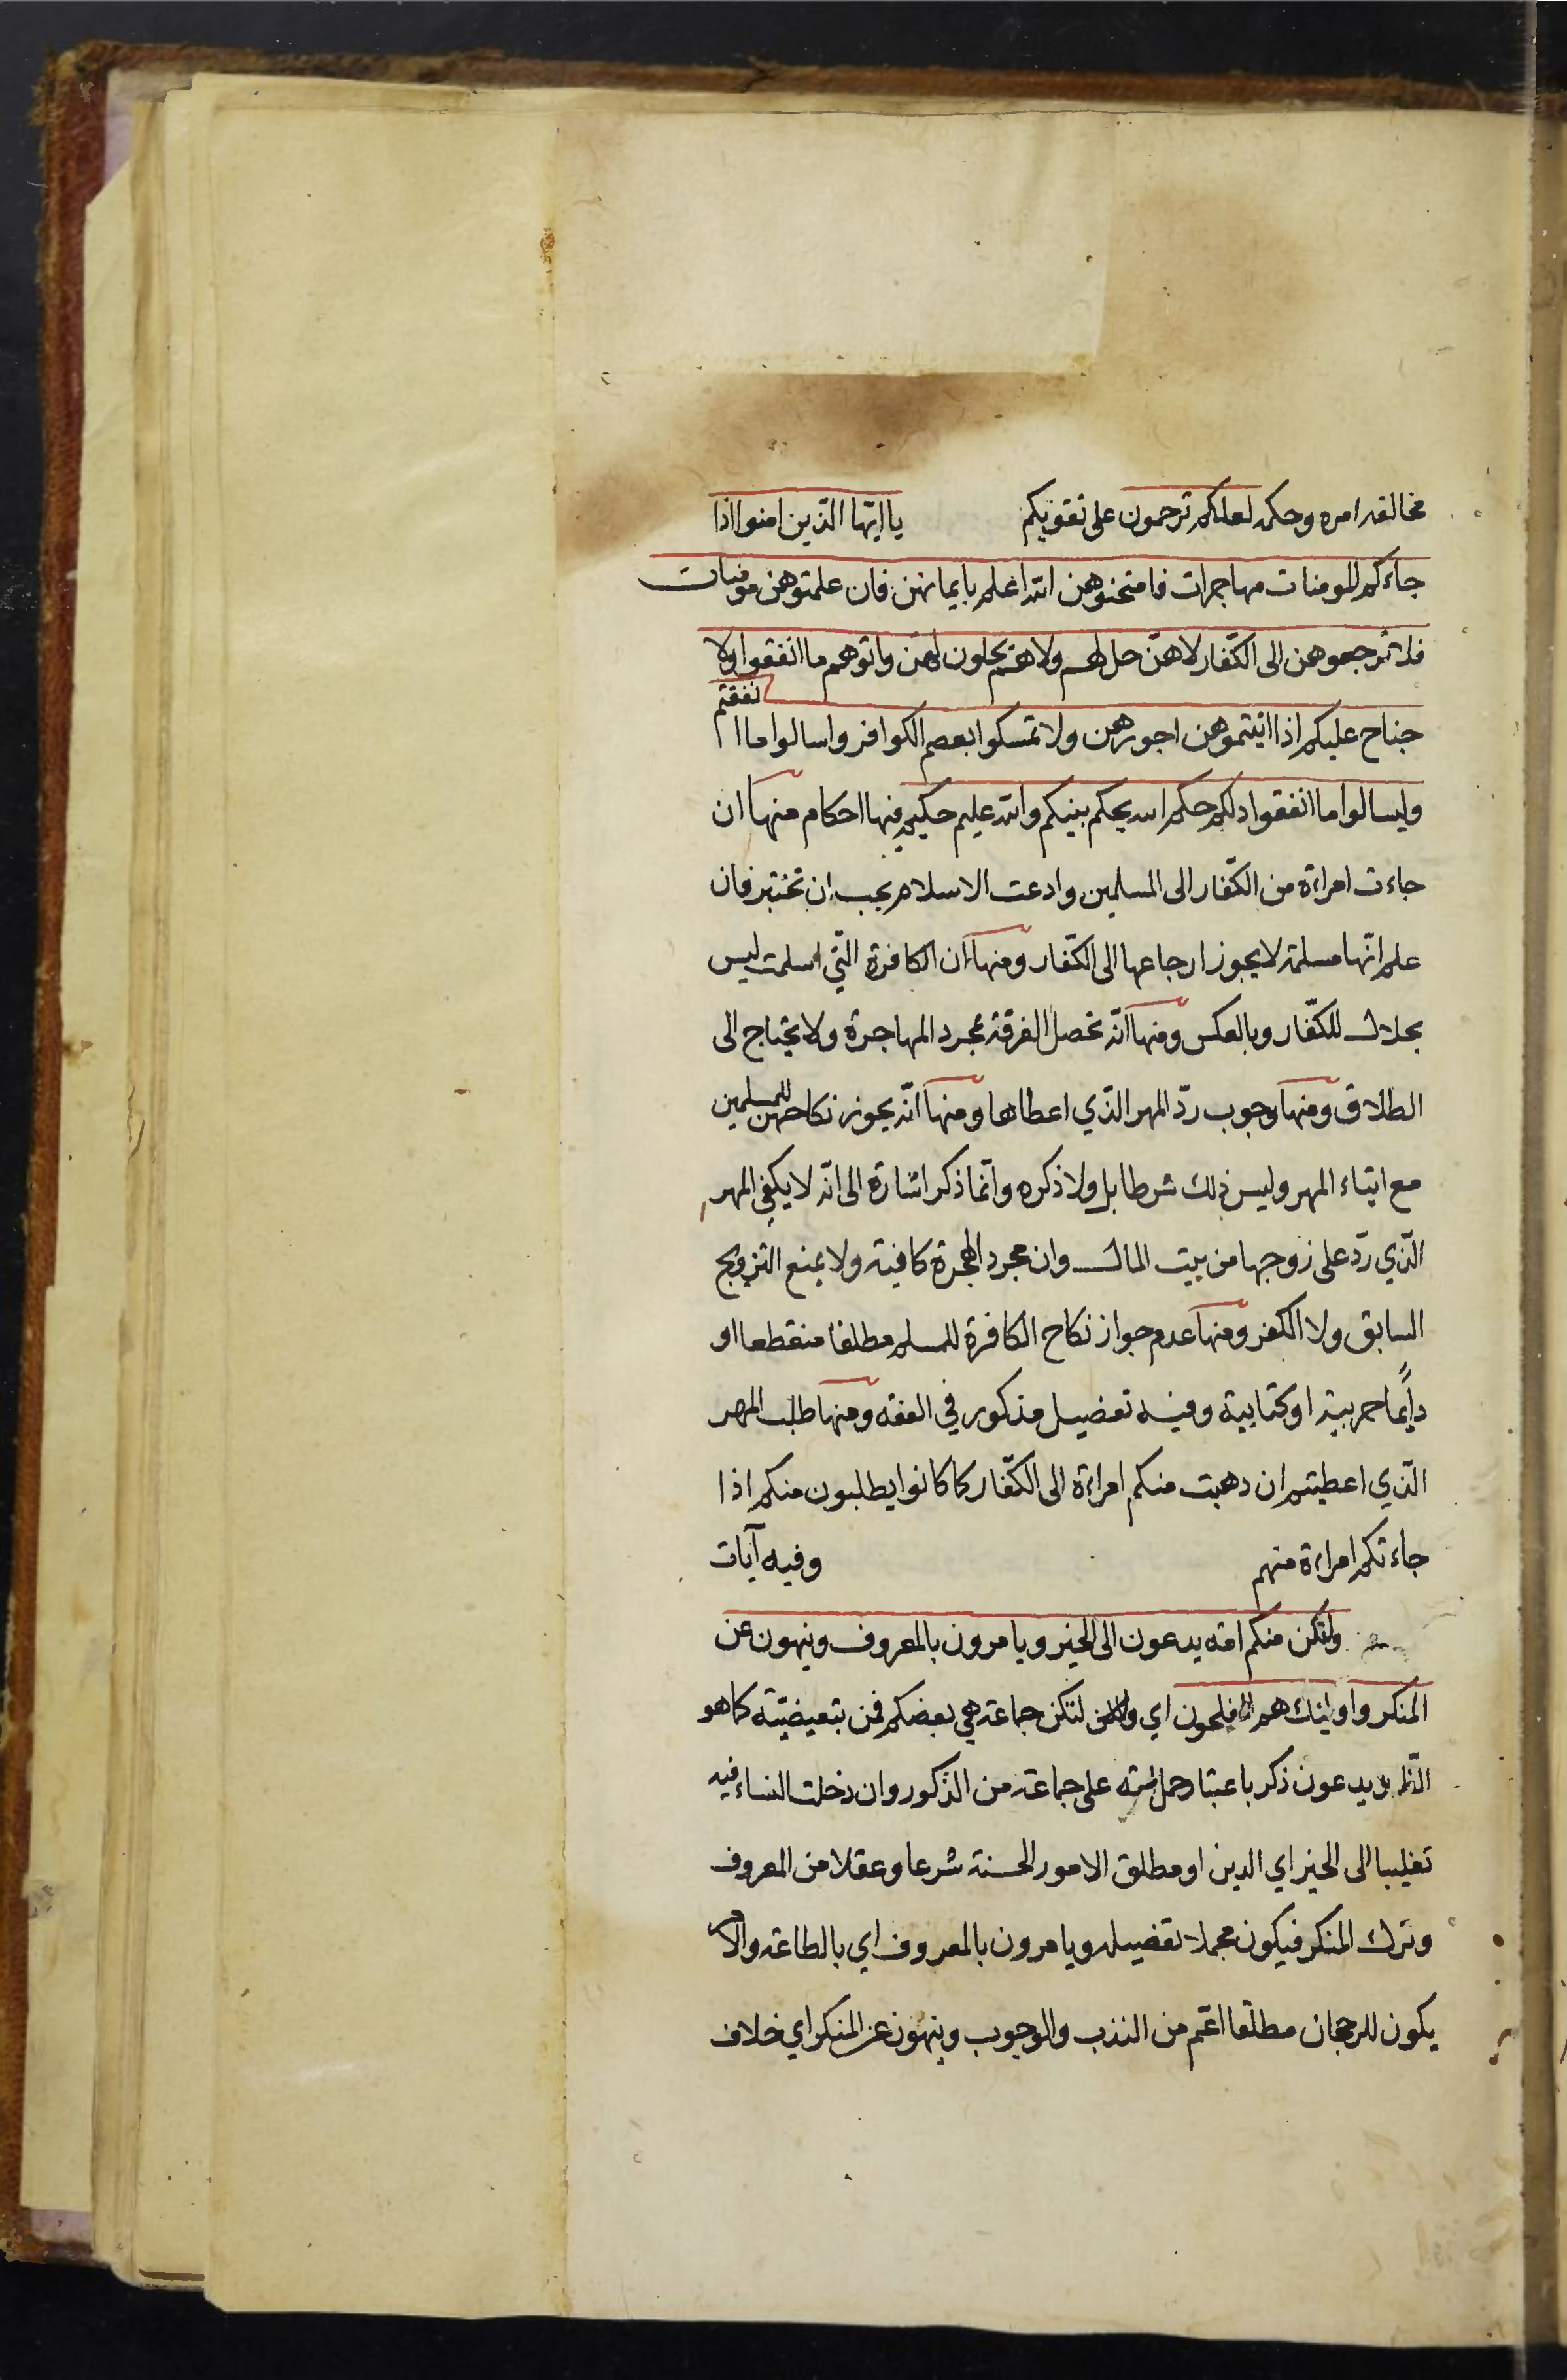 مخالفه امره وحكمه لعلكم ترحمون على تقويكم يا ايّها الّذين امنوا اذا
جاءكم المومنات مهاجرات فامتحنوهن الله اعلم بايمانهن فان علمتوهن مومنات
فلا ترجعوهن الى الكفّار لا هنّ حل لهم ولا هم يحلون لهن واتوهم ما انفقوا ولا
جناح عليكم اذا اتيتموهن اجورهن ولا تمسكوا بعصم الكوافر واسالوا ما انفقتم
وليسالوا ما انفقوا ذلكم حكم الله يحكم بينكم والله عليم حكيم فيها احكام منها ان
جاءت امراءة من الكفّار الى المسلمين وادعت الاسلام يجب ان تختبر فان
علم انّها مسلمة لا يجوز ارجاعها الى الكفّار ومنها ان الكافرة الّتي اسلمت ليس
بحلال للكفّار وبالعكس ومنها انّه تحصل الفرقة بمجرد المهاجرة ولا يحتاج الى
الطلاق ومنها وجوب ردّ المهر الذّي اعطاها ومنها انّه يجوز نكاحهن للمسلمين
مع ايتاء المهر وليس ذلك شرطا بل ولا ذكره وانّما ذكر اشارة الى انّه لا يكفي المهر
الّذي ردّ على زوجها من بيت المال وان مجرد الهجرة كافية ولا يمنع التزويج
السابق ولا الكفر ومنها عدم جواز نكاح الكافرة للمسلم مطلقا منقطعا او
دايًما حربية او كتابية وفيه تفضيل مذكور في الفقه ومنها طلب المهر
الّذي اعطيتم ان ذهبت منكم امراءة الى الكفّار كما كانوا يطلبون منكم اذا
جاءتكم امراءة منهم وفيه آيات
ولتكن منكم امه يدعون الى الخير ويامرون بالمعروف وينهون عن
المنكر واولئك هم المفلحون اي لتكن جماعة هي بعضكم فمن بتعيضيّة كما هو
الظّ يدعون ذكر باعتبار حمل امته على جماعة من الذّكور وان دخلت النساء فيه
تغليبا الى الخير اي الدين او مطلق الامور الحسنة شرعا وعقلا من المعروف
وترك المنكر فيكون مجملا تفصيله ويامرون بالمعروف اي بالطاعة والامر
يكون للرجحان مطلقا اعّم من الندب والوجوب وينهون عن المنكر اي خلاف